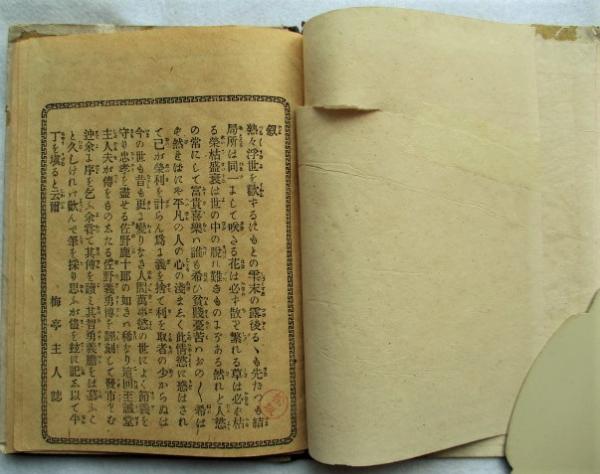 叙
熟々浮世を歓ずるにもとの雫末の露後るゝも先たつも結
局所は同一にして咲さる花は必ず散り繁れる草は必ず枯
る榮枯盛衰は世の中の脱れ難きものにぞある然れど人慾
の常にして富貴喜樂ハ誰も希ひ貧賤憂苦ハおの〳〵希は
ず然るにや平凡の人の心の淺ましく此情慾に惑はされ
て己が榮利を計らん爲に義を捨て利を取者の少からぬは
今の世も昔も更に變りなき人間萬事慾の世によく節義を
守り忠孝を盡せる佐野鹿十郎の如きハ稀なり這回主誠堂
主人夫が傳をものしたる佐野義勇傳を評刻して發市せむ
迚余に序を乞ふ余甞て其傳を讀み其智勇義膽をば慕ふこ
と久しければ歓んで筆を採り思ふが儘を玆に記し以て半
丁を塡ると云爾
梅亭主人誌